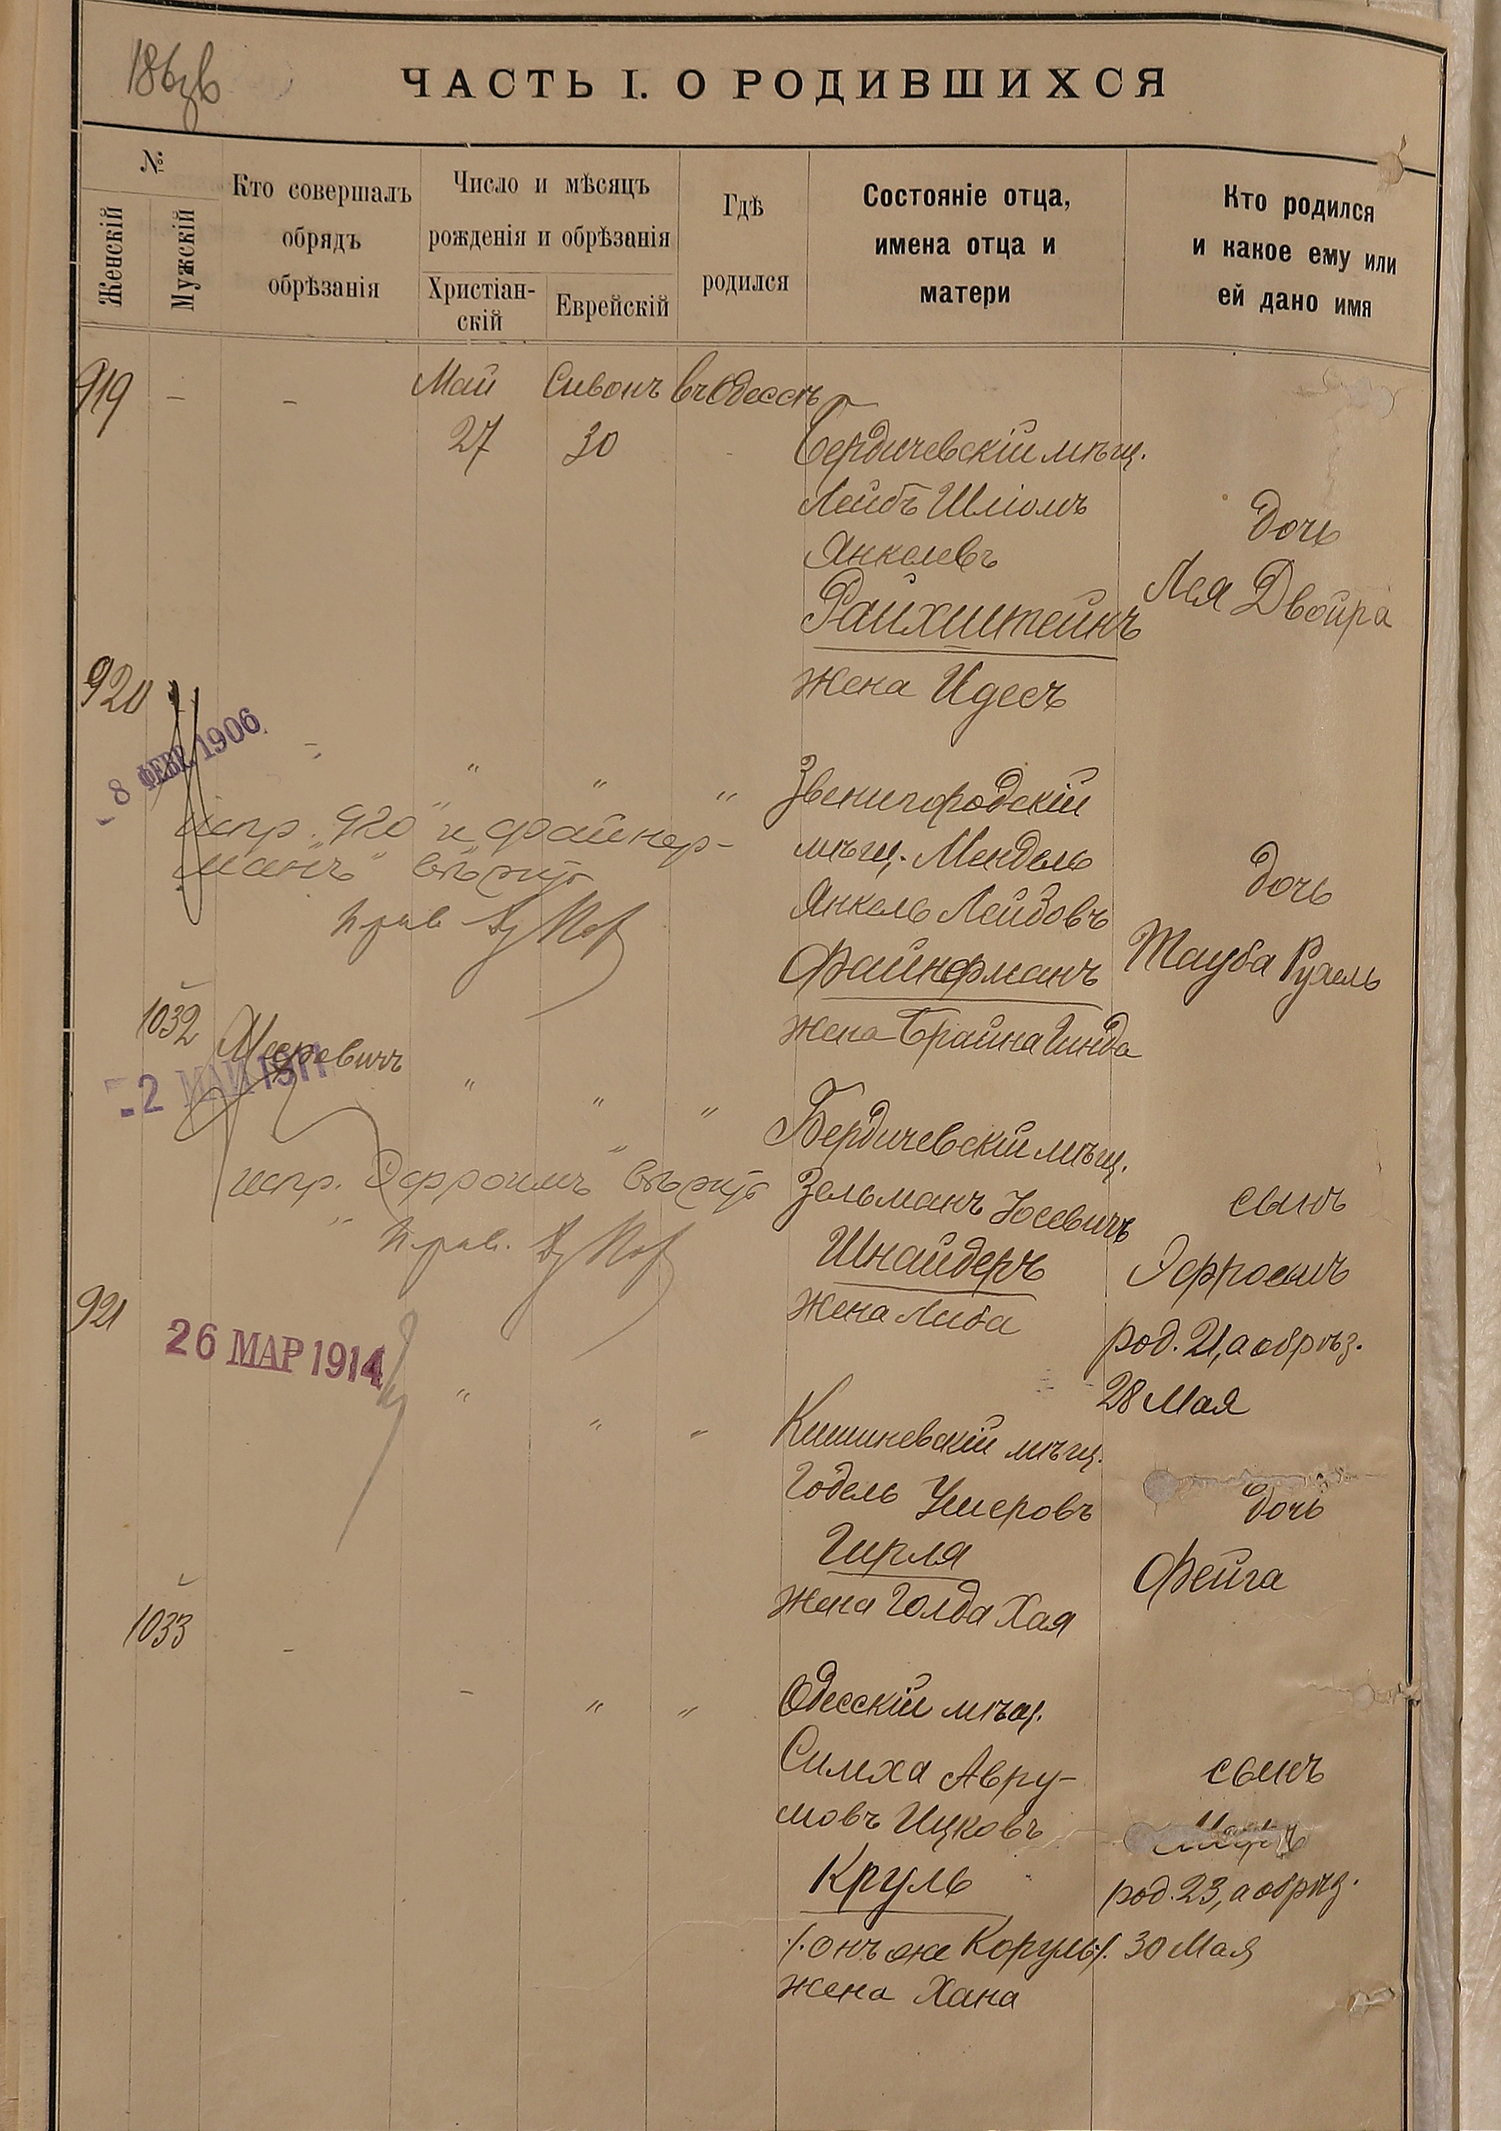 ЧАСТЬ I. О РОДИВШИХСЯ
№
Женскій
Мужскій
Кто совершалъ
обрядъ
обрѣзанія
Число и мѣсяцъ
рожденія и обрѣзанія
Христіан-
скій
Еврейскій
Гдѣ
родился
Состояніе отца,
имена отца и
матери
Кто родился
и какое ему или
ей дано имя
919 - - Май Сивонъ въ Одессѣ
27 30
Бердичевскій мѣщ.
Лейбъ Шліомъ
Янкелевъ
Райхштейнъ
жена Идесъ
дочь
Лея Двойра
920
-8 ФЕВ. 1906
- " " "
Звенигородскій
мѣщ. Мендель
Янкель Лейбовъ
Файнерманъ
жена Брайна Гинда
дочь
Тауба Рухель
испр. "920" и "Файнер-
манъ" вѣрно
1032
-2 МАЙ 1911
" " "
Бердичевскій мѣщ.
Зельманъ Іосевичъ
Шнайдеръ
жена Либа
сынъ
Эфроимъ
род. 21, а обрѣз.
28 Мая
испр. "Эфроимъ" вѣрно
921
26 МАР 1914
" " "
Кишиневскій мѣщ.
Годель Ушеровъ
Гирля
жена Голда Хая
дочь
Фейга
1033 - - " "
Одесскій мѣщ.
Симха Авру-
мовъ Ицковъ
Круль
/. онъ же Коруль ./
жена Хана
сынъ
род. 23, а обрѣз.
30 Мая